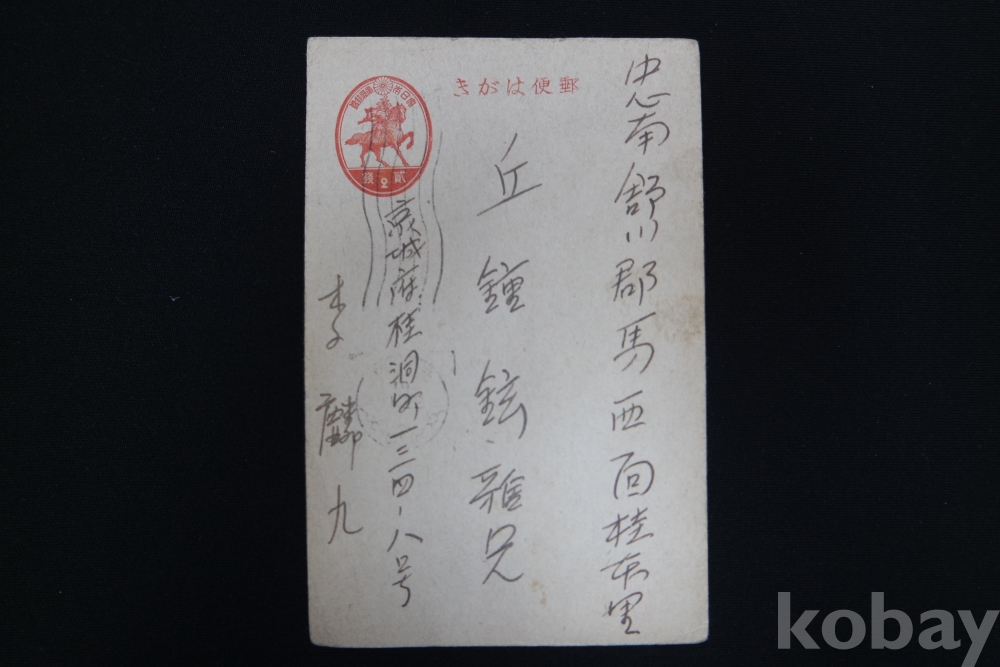 郵便はがき
大日本帝國郵便
貳2錢
忠南舒川郡馬西面桂東里
丘鍾鉉雅兄
京城府桂洞町一三四ノ八号
李麟九
kobay